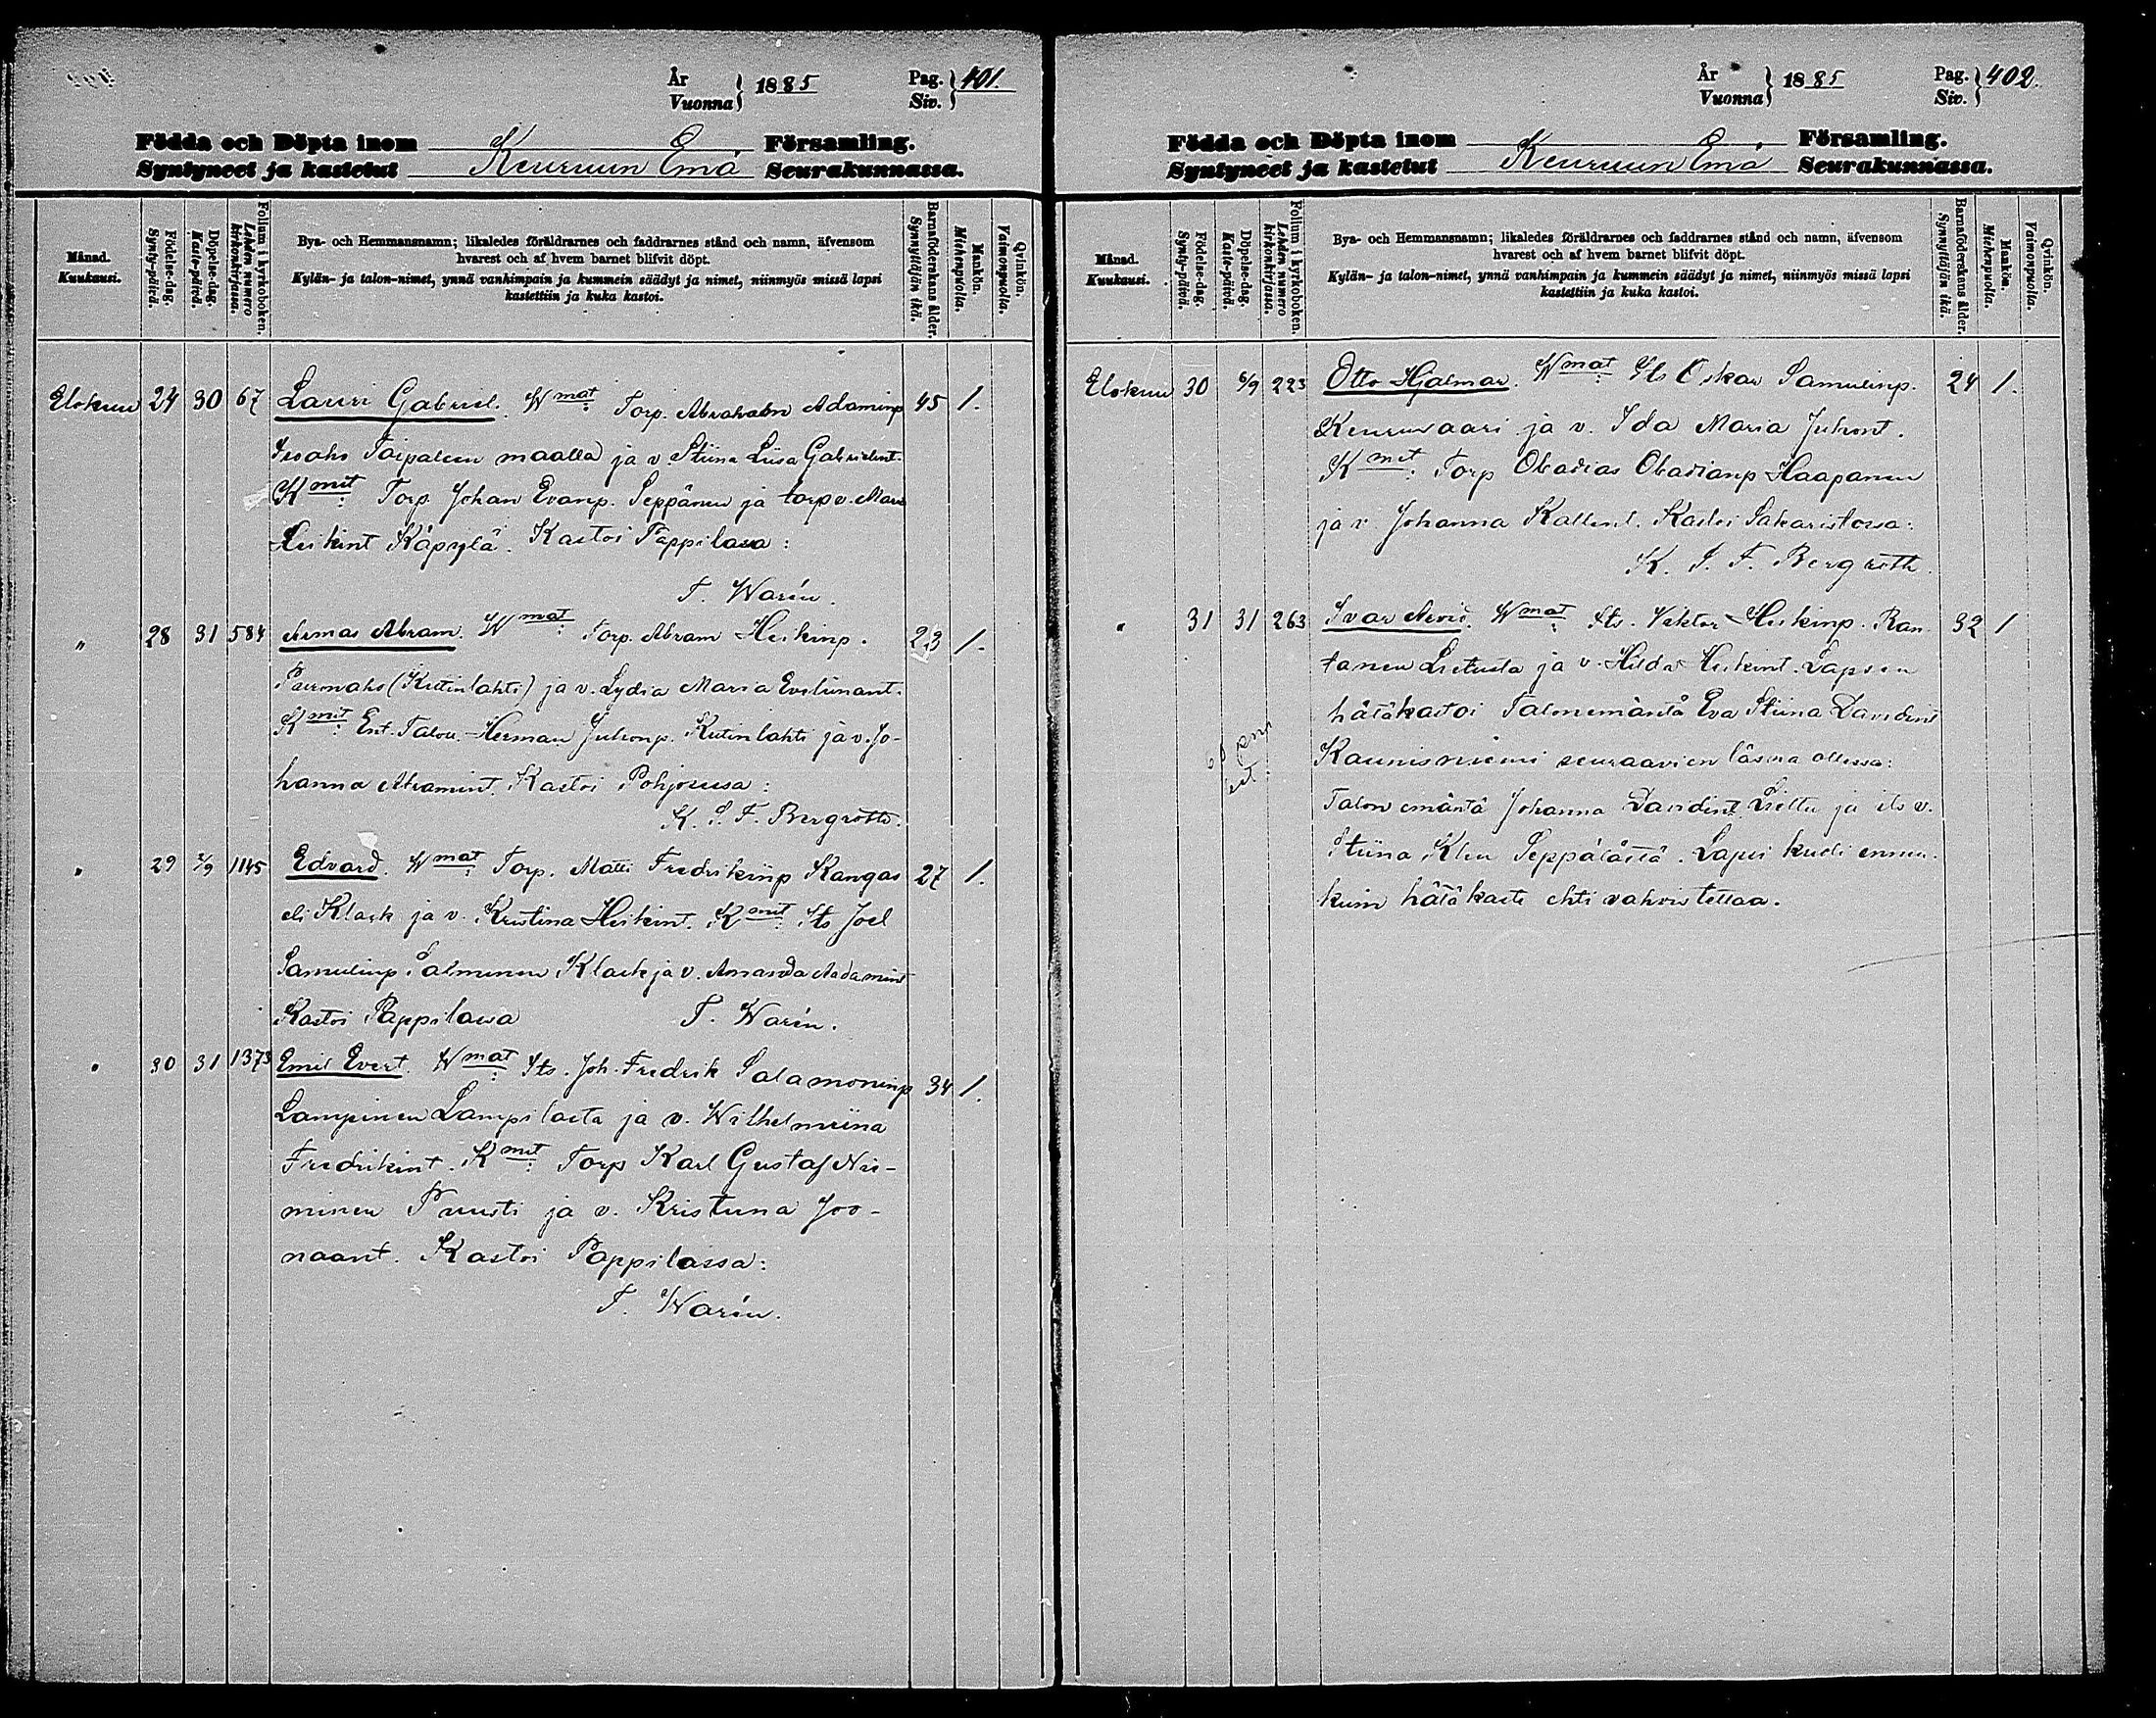 År
Vuonna } 1885 Pag.
Siv. } 401.
Födda och Döpta inom Keuruun Emä Församling.
Syntyneet ja kastetut Seurakunnassa.
Månad. Kuukausi.
Födelse-dag. Synty-päivä.
Döpelse-dag. Kaste-päivä.
Folium i kyrkoboken. Lehden numero kirkonkirjassa.
Bya- och Hemmansnamn; likaledes föräldrarnes och faddrarnes stånd och namn, äfvensom
hvarest och af hvem barnet blifvit döpt.
Kylän- ja talon-nimet, ynnä vanhimpain ja kummein säädyt ja nimet, niinmyös missä lapsi
kastettiin ja kuka kastoi.
Barnaföderskans ålder. Synnyttäjän ikä.
Mankön. Miehenpuolia.
Qvinkön. Vaimonpuolia.
Elokuu 24 30 67 Lauri Gabriel. Wmat: Torp. Abrahabm Adaminp 45 1.
Isoaho Taipaleen maalla ja v. Stiina Liisa Gabrielint.
Kmit: Torp. Johan Evanp. Seppänen ja torp v. Maria
Heikint Käpylä. Kastoi Pappilassa:
T. Warén.
" 28 31 584 Armas Abram. Wmat: Torp. Abram Heikinp. 23 1.
(Kiitinlahti) ja v. Lydia Maria Eveliinant.
Kmit: Ent. Talon. Herman Juhonp. Kiitinlahti ja v. Jo-
hanna Abramint. Kastoi Pohjoisessa:
K. S. F. Bergroth.
" 29 2/9 1145 Edvard. Wmat: Torp. Matti Fredrikinp Kangas 27 1.
eli Klack ja v. Kristina Heikint. Kmit: Its Joel
Samulinp. Salminen Klack ja v. Amanda Aadamint
Kastoi Pappilassa T. Warén.
" 30 31 1373 Emil Evert. Wmat: Its. Joh. Fredrik Salamoninp 34 1.
Lampinen Lampilasta ja v. Wilhelmiina
Fredrikint. Kmit: Torp Karl Gustaf Nie-
minen Puusti ja v. Kristiina Joo-
naant. Kastoi Pappilassa:
T. Warén.
År
Vuonna } 1885 Pag.
Siv. } 402.
Födda och Döpta inom Keuruun Emä Församling.
Syntyneet ja kastetut Seurakunnassa.
Månad. Kuukausi.
Födelse-dag. Synty-päivä.
Döpelse-dag. Kaste-päivä.
Folium i kyrkoboken. Lehden numero kirkonkirjassa.
Bya- och Hemmansnamn; likaledes föräldrarnes och faddrarnes stånd och namn, äfvensom
hvarest och af hvem barnet blifvit döpt.
Kylän- ja talon-nimet, ynnä vanhimpain ja kummein säädyt ja nimet, niinmyös missä lapsi
kastettiin ja kuka kastoi.
Barnaföderskans ålder. Synnyttäjän ikä.
Mankön. Miehenpuolia.
Qvinkön. Vaimonpuolia.
Elokuu 30 6/9 223 Otto Hjalmar. Wmat: Its Oskar Samulinp. 24 1.
Keuruvaari ja v. Ida Maria Juhont.
Kmit: Torp Obadias Obadianp Haapanen
ja v. Johanna Kallent. Kastoi Sakaristossa:
K. S. F. Bergroth.
" 31 31 263 Ivar Arvid. Wmat: Its. Viktor Heikinp. Ran- 32 1
tanen Lietusta ja v. Hilda Heikint. Lapsen
hätäkastoi Talonemäntä Eva Stiina Davidint
Kaunisniemi seuraavien läsnä ollessa:
Talon emäntä Johanna Davidint Liettu ja its v.
Stiina Seppälästä. Lapsi kuoli ennen
kuin hätäkaste ehti vahvistettaa.